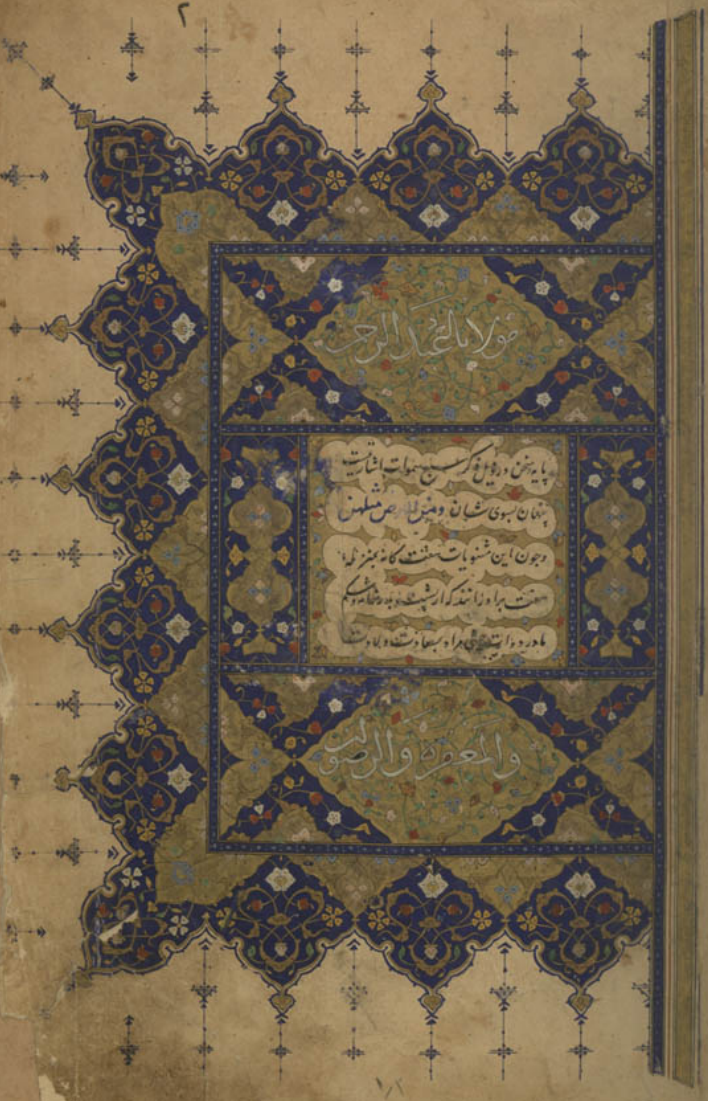 ٢
مولانا عبد الرحمن
پایه سخن در سبع سموات باشارت
بسوی ومن الارض مثلهن
وچون این مثنویات هفت کانه بمنزله
هفت برادرانند که از پشت پدر خامه وشکم
مادر دوات نژاد بسعادت ولادت
والمغفرة والرضوان